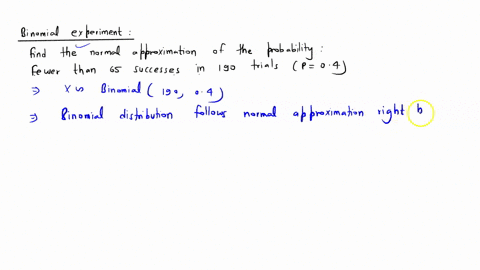 Binomial experiment :
Find the normal approximation of the probability :
Fewer than 65 successes in 190 trials ( P = 0.4 )
⇒ X ~ Binomial ( 190, 0.4 )
⇒ Binomial distribution follows normal approximation right b